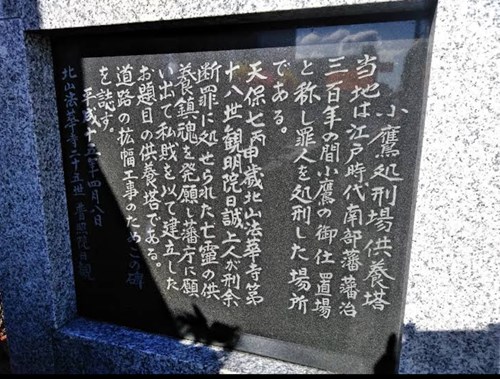 小鷹処刑場供養塔
当地は江戸時代南部藩藩治
三百年の間小鷹の御仕置場
と称し罪人を処刑した場所
である。
天保七丙申歳北山法華寺第
十八世観明院日誠上人が刑余
断罪に処せられた亡霊の供
養鎮魂を発願し藩庁に願
い出て私財を以て建立した
お題目の供養塔である。
道路の拡幅工事のためこの碑
を誌す。
平成十 年四月八日
北山法華寺二十五世 院日観